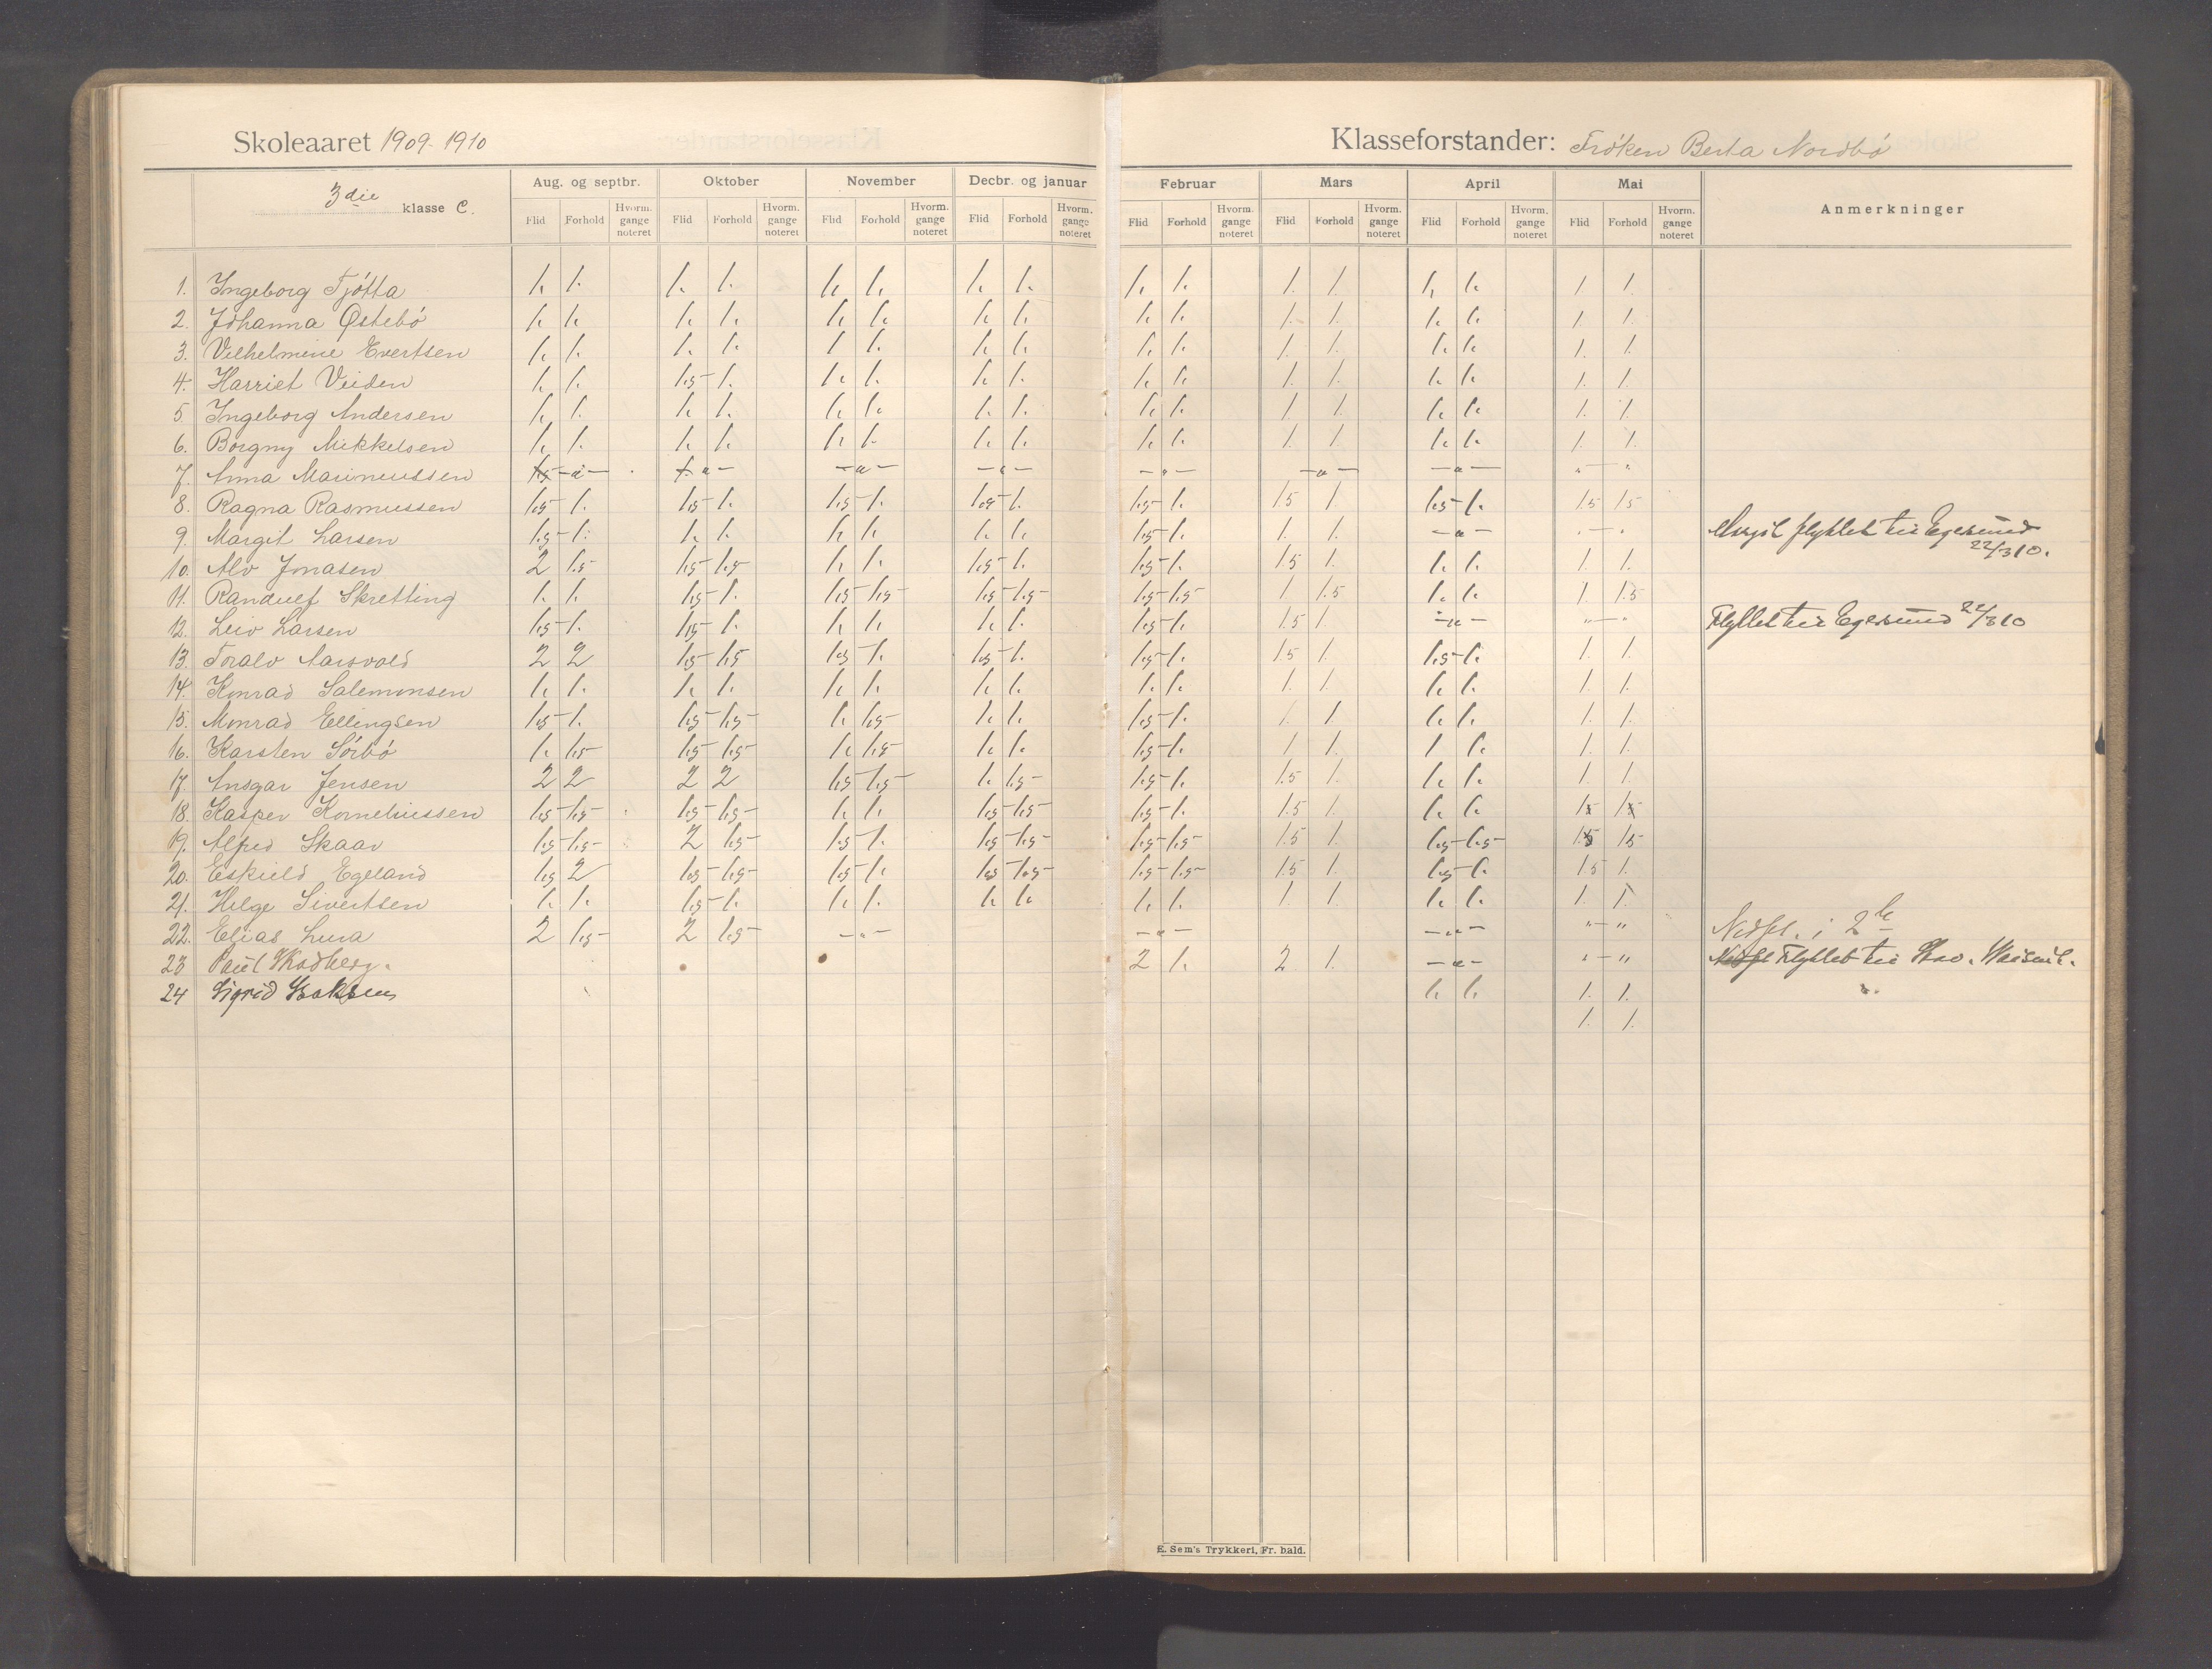 Skoleaaret 1909-1910
Klasseforstander: Frøken Berta Nordbø
3die klasse C.
Aug. og septbr. Oktober November Decbr. og januar Februar Mars April Mai Anmerkninger
Flid Forhold Hvorm. gange noteret Flid Forhold Hvorm. gange noteret Flid Forhold Hvorm. gange noteret Flid Forhold Hvorm. gange noteret Flid Forhold Hvorm. gange noteret Flid Forhold Hvorm. gange noteret Flid Forhold Hvorm. gange noteret Flid Forhold Hvorm. gange noteret
1. Ingeborg Tjøtta 1. 1. 1. 1. 1. 1. 1. 1. 1. 1. 1. 1. 1. 1. 1. 1.
2. Johanna Østebø 1. 1. 1. 1. 1. 1. 1. 1. 1. 1. 1. 1. 1. 1. 1. 1.
3. Vilhelmine Evertsen 1. 1. 1. 1. 1 1. 1. 1. 1. 1. 1. 1. 1. 1. 1. 1.
4. Harriet Viiden 1. 1. 1.5 1. 1. 1. 1. 1. 1. 1. 1. 1. 1. 1. 1. 1.
5. Ingeborg Andersen 1. 1. 1. 1. 1. 1. 1. 1. 1. 1. 1. 1. 1. 1. 1. 1.
6. Borgny Mikkelsen 1. 1. 1. 1. 1. 1. 1. 1. 1. 1. 1. 1. 1. 1. 1. 1.
7. Anna Marinussen — " — — " — — " — — " — — " — — " — — " — " — "
8. Ragna Rasmussen 1.5 1. 1.5 1. 1.5 1. 1.5 1. 1.5 1. 1.5 1. 1.5 1. 1.5 1.5
9. Margit Larsen 1.5 1. 1. 1. 1. 1. 1. 1. 1.5 1. 1. 1. — " — " — " Margit flyttet til Egersund
22/3 10.
10. Alv Jonasen 2 1.5 1.5 1.5 1. 1. 1.5 1. 1.5 1. 1.5 1. 1. 1. 1. 1.
11. Randulf Skretting 1. 1. 1.5 1. 1.5 1.5 1.5 1.5 1.5 1.5 1 1.5 1. 1. 1. 1.5
12. Leiv Larsen 1.5 1. 1.5 1. 1. 1. 1. 1. 1.5 1. 1.5 1. — " — " — " Flyttet til Egersund 22/3 10
13. Toralv Aarsvold 2 2 1.5 1.5 1.5 1. 1.5 1. 1.5 1. 1.5 1. 1.5 1. 1. 1.
14. Konrad Salemonsen 1. 1. 1. 1. 1. 1. 1. 1. 1. 1. 1. 1. 1. 1. 1. 1.
15. Monrad Ellingsen 1.5 1. 1.5 1.5 1. 1.5 1. 1. 1.5 1. 1 1. 1. 1. 1. 1.
16. Karsten Sørbø 1. 1.5 1.5 1.5 1. 1.5 1. 1. 1.5 1. 1 1. 1 1. 1. 1.
17. Ansgar Jensen 2 2 2 2 1.5 1.5 1. 1.5 1.5 1. 1.5 1. 1. 1. 1. 1.
18. Kasper Korneliussen 1.5 1.5 1.5 1.5 1. 1. 1.5 1.5 1.5 1. 1.5 1. 1. 1.
19. Alfred Skaar 1.5 1.5 2 1.5 1.5 1. 1.5 1.5 1.5 1.5 1.5 1. 1.5 1.5 1.5 1.5
20. Eskild Egeland 1.5 2 1.5 1.5 1.5 1. 1.5 1.5 1.5 1.5 1.5 1. 1.5 1. 1.5 1.
21. Helge Sivertsen 1. 1. 1.5 1. 1. 1. 1. 1. 1. 1. 1. 1. 1. 1. 1. 1.
22. Elias Lura 2 1.5 2 1.5 — " — — " — — " — " — " Nedfl. i 2 kl
23 Paul 2 1. 2 1. — " — " — " Flyttet til
24 Sigrid 1. 1. 1. 1.
1. 1.
E. Sem's Trykkeri, Fr. hald.